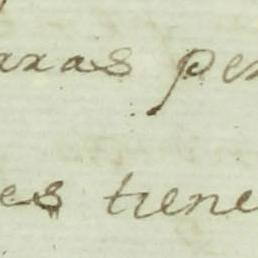 axas pe
es tiene